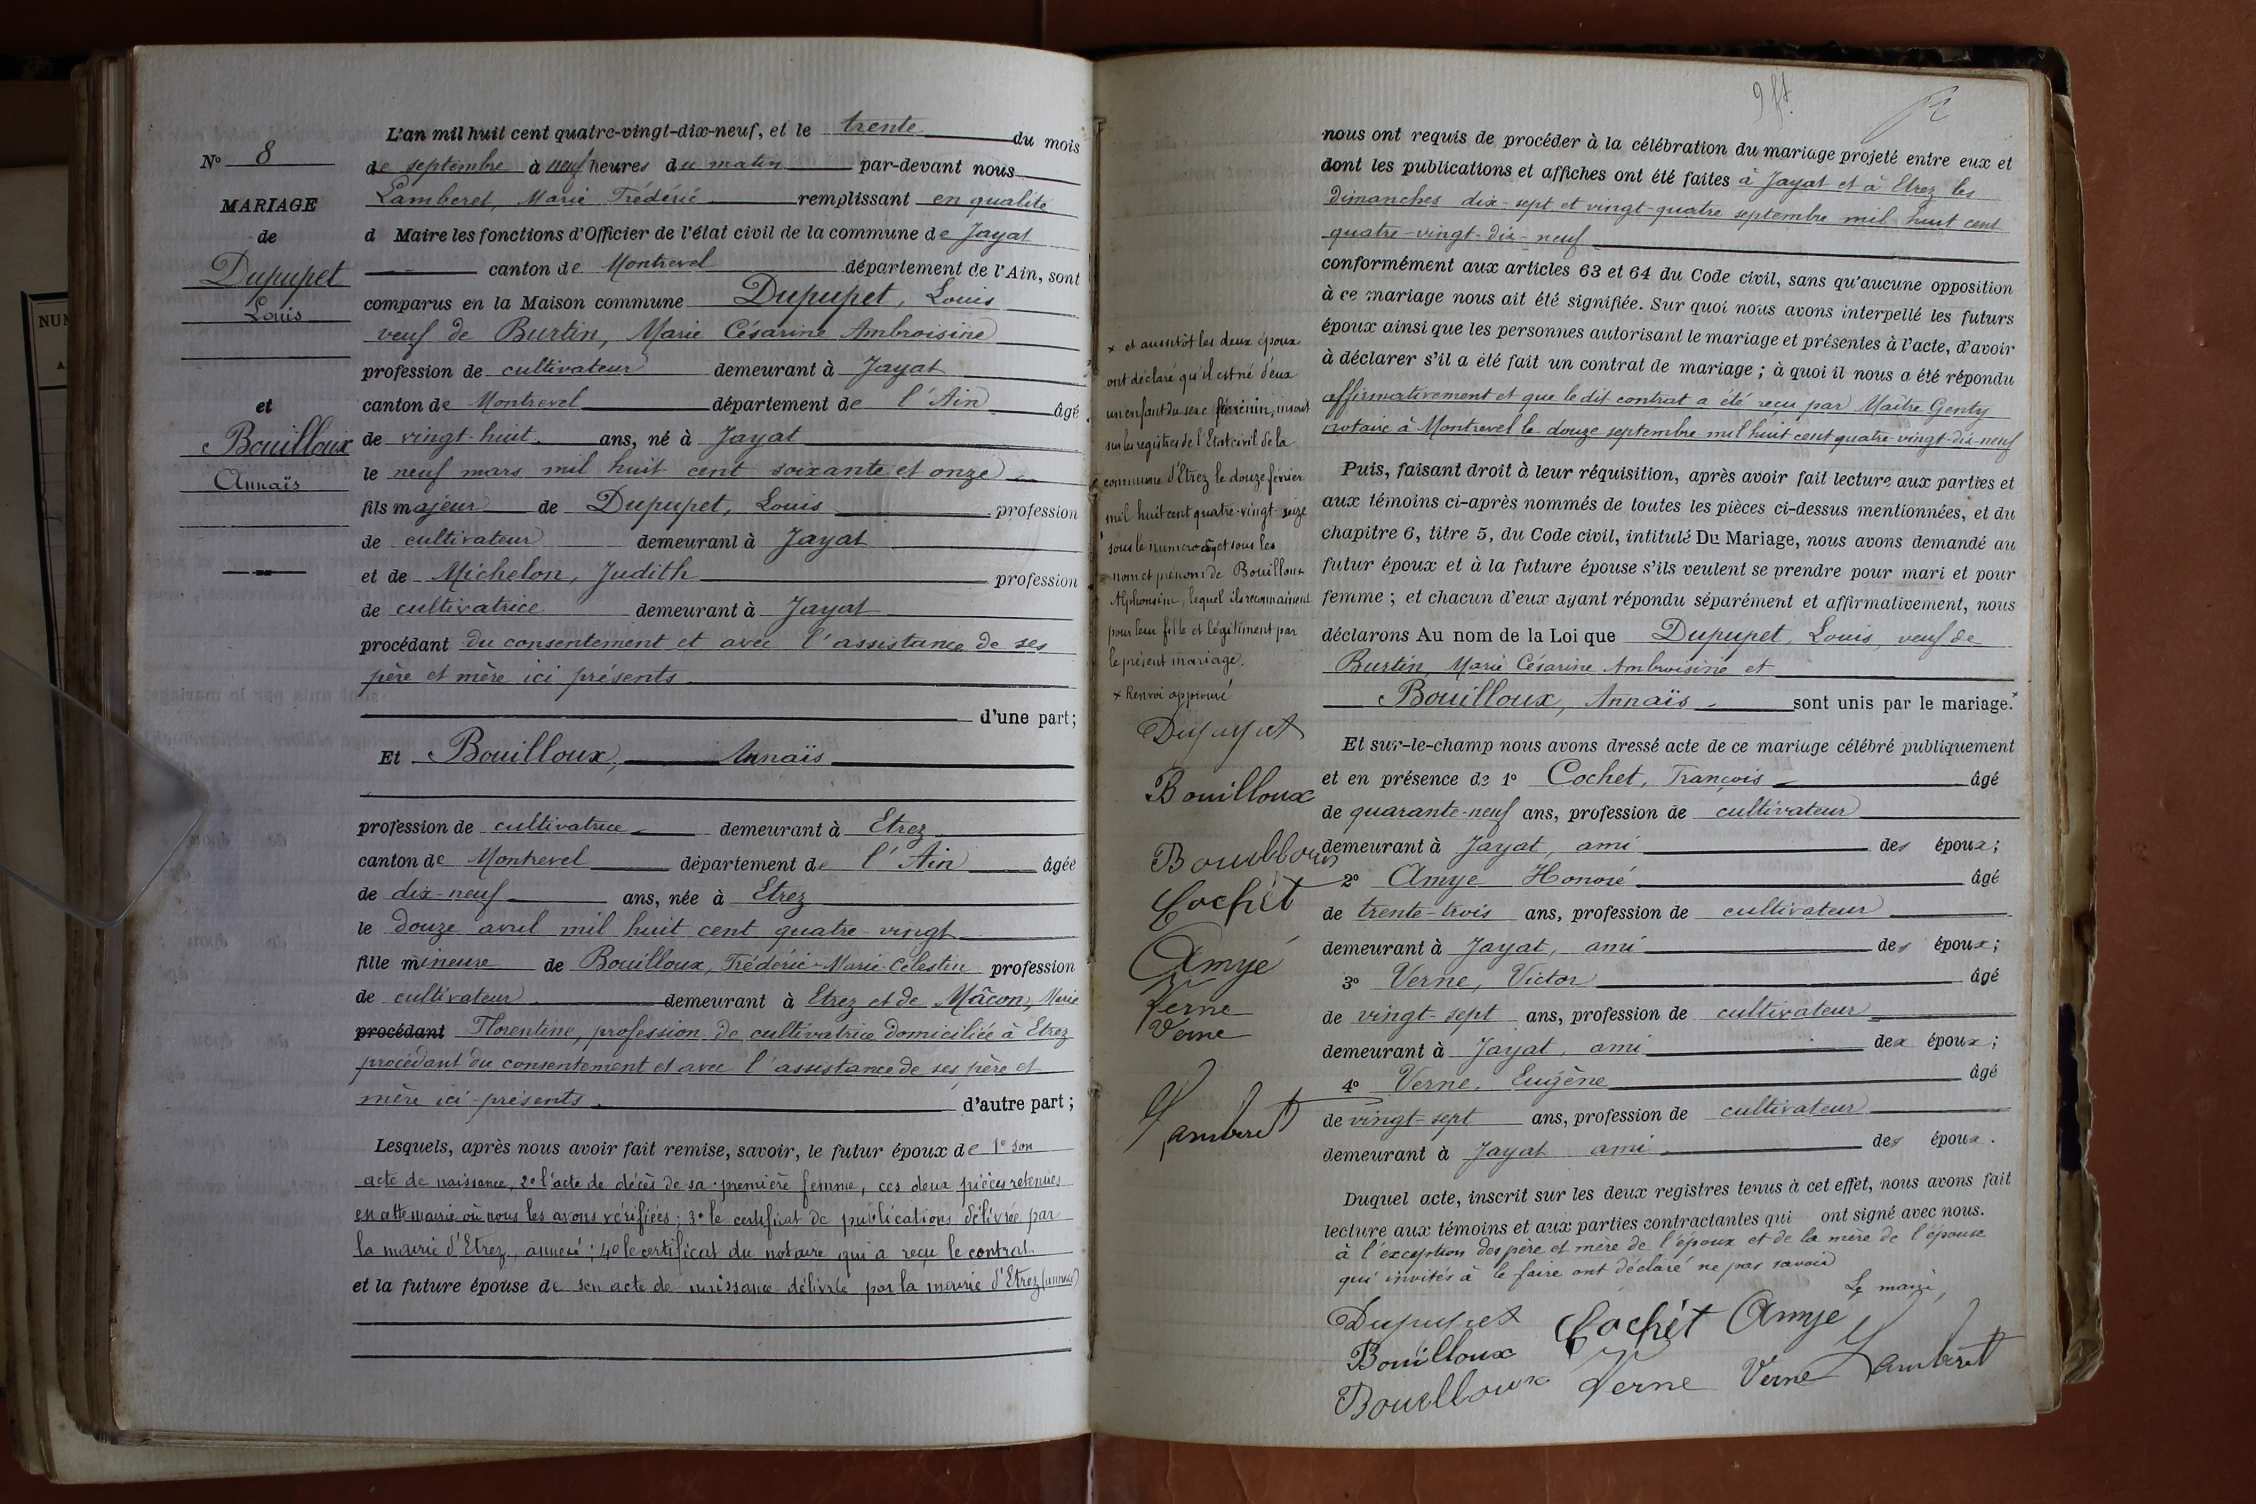 N° 8
MARIAGE
de
Dupupet
Louis
et
Bouilloux
Annaïs
L'an mil huit cent quatre-vingt-dix-neuf, et le trente du mois
de septembre à neuf heures du matin par-devant nous
Lamberet, Marie Frédéric remplissant en qualité
d Maire les fonctions d'Officier de l'état civil de la commune de Jayat
canton de Montrevel département de l'Ain, sont
comparus en la Maison commune Dupupet, Louis
veuf de Burtin, Marie Césarine Ambroisine
profession de cultivateur demeurant à Jayat
canton de Montrevel département de l'Ain âgé
de vingt-huit ans, né à Jayat
le neuf mars mil huit cent soixante et onze
fils majeur de Dupupet, Louis profession
de cultivateur demeurant à Jayat
et de Michelon, Judith profession
de cultivatrice demeurant à Jayat
procédant du consentement et avec l'assistance de ses
père et mère ici présents
d'une part;
Et Bouilloux, Annaïs
profession de cultivatrice demeurant à Etrez
canton de Montrevel département de l'Ain âgée
de dix-neuf ans, née à Etrez
le douze avril mil huit cent quatre-vingt
fille mineure de Bouilloux, Frédéric-Marie-Célestin profession
de cultivateur demeurant à Etrez et de Mâcon, Marie
procédant Florentine, profession de cultivatrice domiciliée à Etrez
procédant du consentement et avec l'assistance de ses père et
mère ici-présents d'autre part;
Lesquels, après nous avoir fait remise, savoir, le futur époux de 1° son
acte de naissance, 2° l'acte de décès de sa première femme, ces deux pièces retenues
en cette mairie où nous les avons vérifiées; 3° le certificat de publications délivrée par
la mairie d'Etrez, annexé; 4° le certificat du notaire qui a reçu le contrat.
et la future épouse de son acte de naissance délivrée par la mairie d'Etrez (annexé)
nous ont requis de procéder à la célébration du mariage projeté entre eux et
dont les publications et affiches ont été faites à Jayat et à Etrez les
dimanches dix-sept et vingt-quatre septembre mil huit cent
quatre-vingt-dix-neuf
conformément aux articles 63 et 64 du Code civil, sans qu'aucune opposition
à ce mariage nous ait été signifiée. Sur quoi nous avons interpellé les futurs
époux ainsi que les personnes autorisant le mariage et présentes à l'acte, d'avoir
à déclarer s'il a été fait un contrat de mariage; à quoi il nous a été répondu
affirmativement et que le dit contrat a été reçu par Maître Genty
notaire à Montrevel le douze septembre mil huit cent quatre-vingt-dix-neuf
Puis, faisant droit à leur réquisition, après avoir fait lecture aux parties et
aux témoins ci-après nommés de toutes les pièces ci-dessus mentionnées, et du
chapitre 6, titre 5, du Code civil, intitulé Du Mariage, nous avons demandé au
futur époux et à la future épouse s'ils veulent se prendre pour mari et pour
femme; et chacun d'eux ayant répondu séparément et affirmativement, nous
déclarons Au nom de la Loi que Dupupet, Louis, veuf de
Burtin, Marie Césarine Ambroisine et
Bouilloux, Annaïs sont unis par le mariage.×
Et sur-le-champ nous avons dressé acte de ce mariage célébré publiquement
et en présence de 1° Cochet, François âgé
de quarante-neuf ans, profession de cultivateur
demeurant à Jayat, ami des époux;
2° Amye Honoré âgé
de trente-trois ans, profession de cultivateur
demeurant à Jayat, ami des époux;
3° Verne, Victor âgé
de vingt-sept ans, profession de cultivateur
demeurant à Jayat, ami des époux;
4° Verne, Eugène âgé
de vingt-sept ans, profession de cultivateur
demeurant à Jayat ami des époux.
Duquel acte, inscrit sur les deux registres tenus à cet effet, nous avons fait
lecture aux témoins et aux parties contractantes qui ont signé avec nous.
à l'exception des père et mère de l'époux et de la mère de l'épouse
qui invités à le faire ont déclaré ne pas savoir
Le maire,
Dupupet Cochet Amye
Bouilloux Verne Verne Lamberet
Bouilloux
× et aussitôt les deux époux
ont déclaré qu'il est né d'eux
un enfant du sexe féminin, inscrit
sur les registres de l'Etat civil de la
commune d'Etrez le douze février
mil huit cent quatre-vingt-seize
sous le numéro et sous les
nom et prénom de Bouilloux
Alphonsine, lequel ils reconnaissent
pour leur fille et légitiment par
le présent mariage.
× Renvoi approuvé
Dupupet
Bouilloux
Bouilloux
Cochet
Amye
Verne
Verne
Lamberet